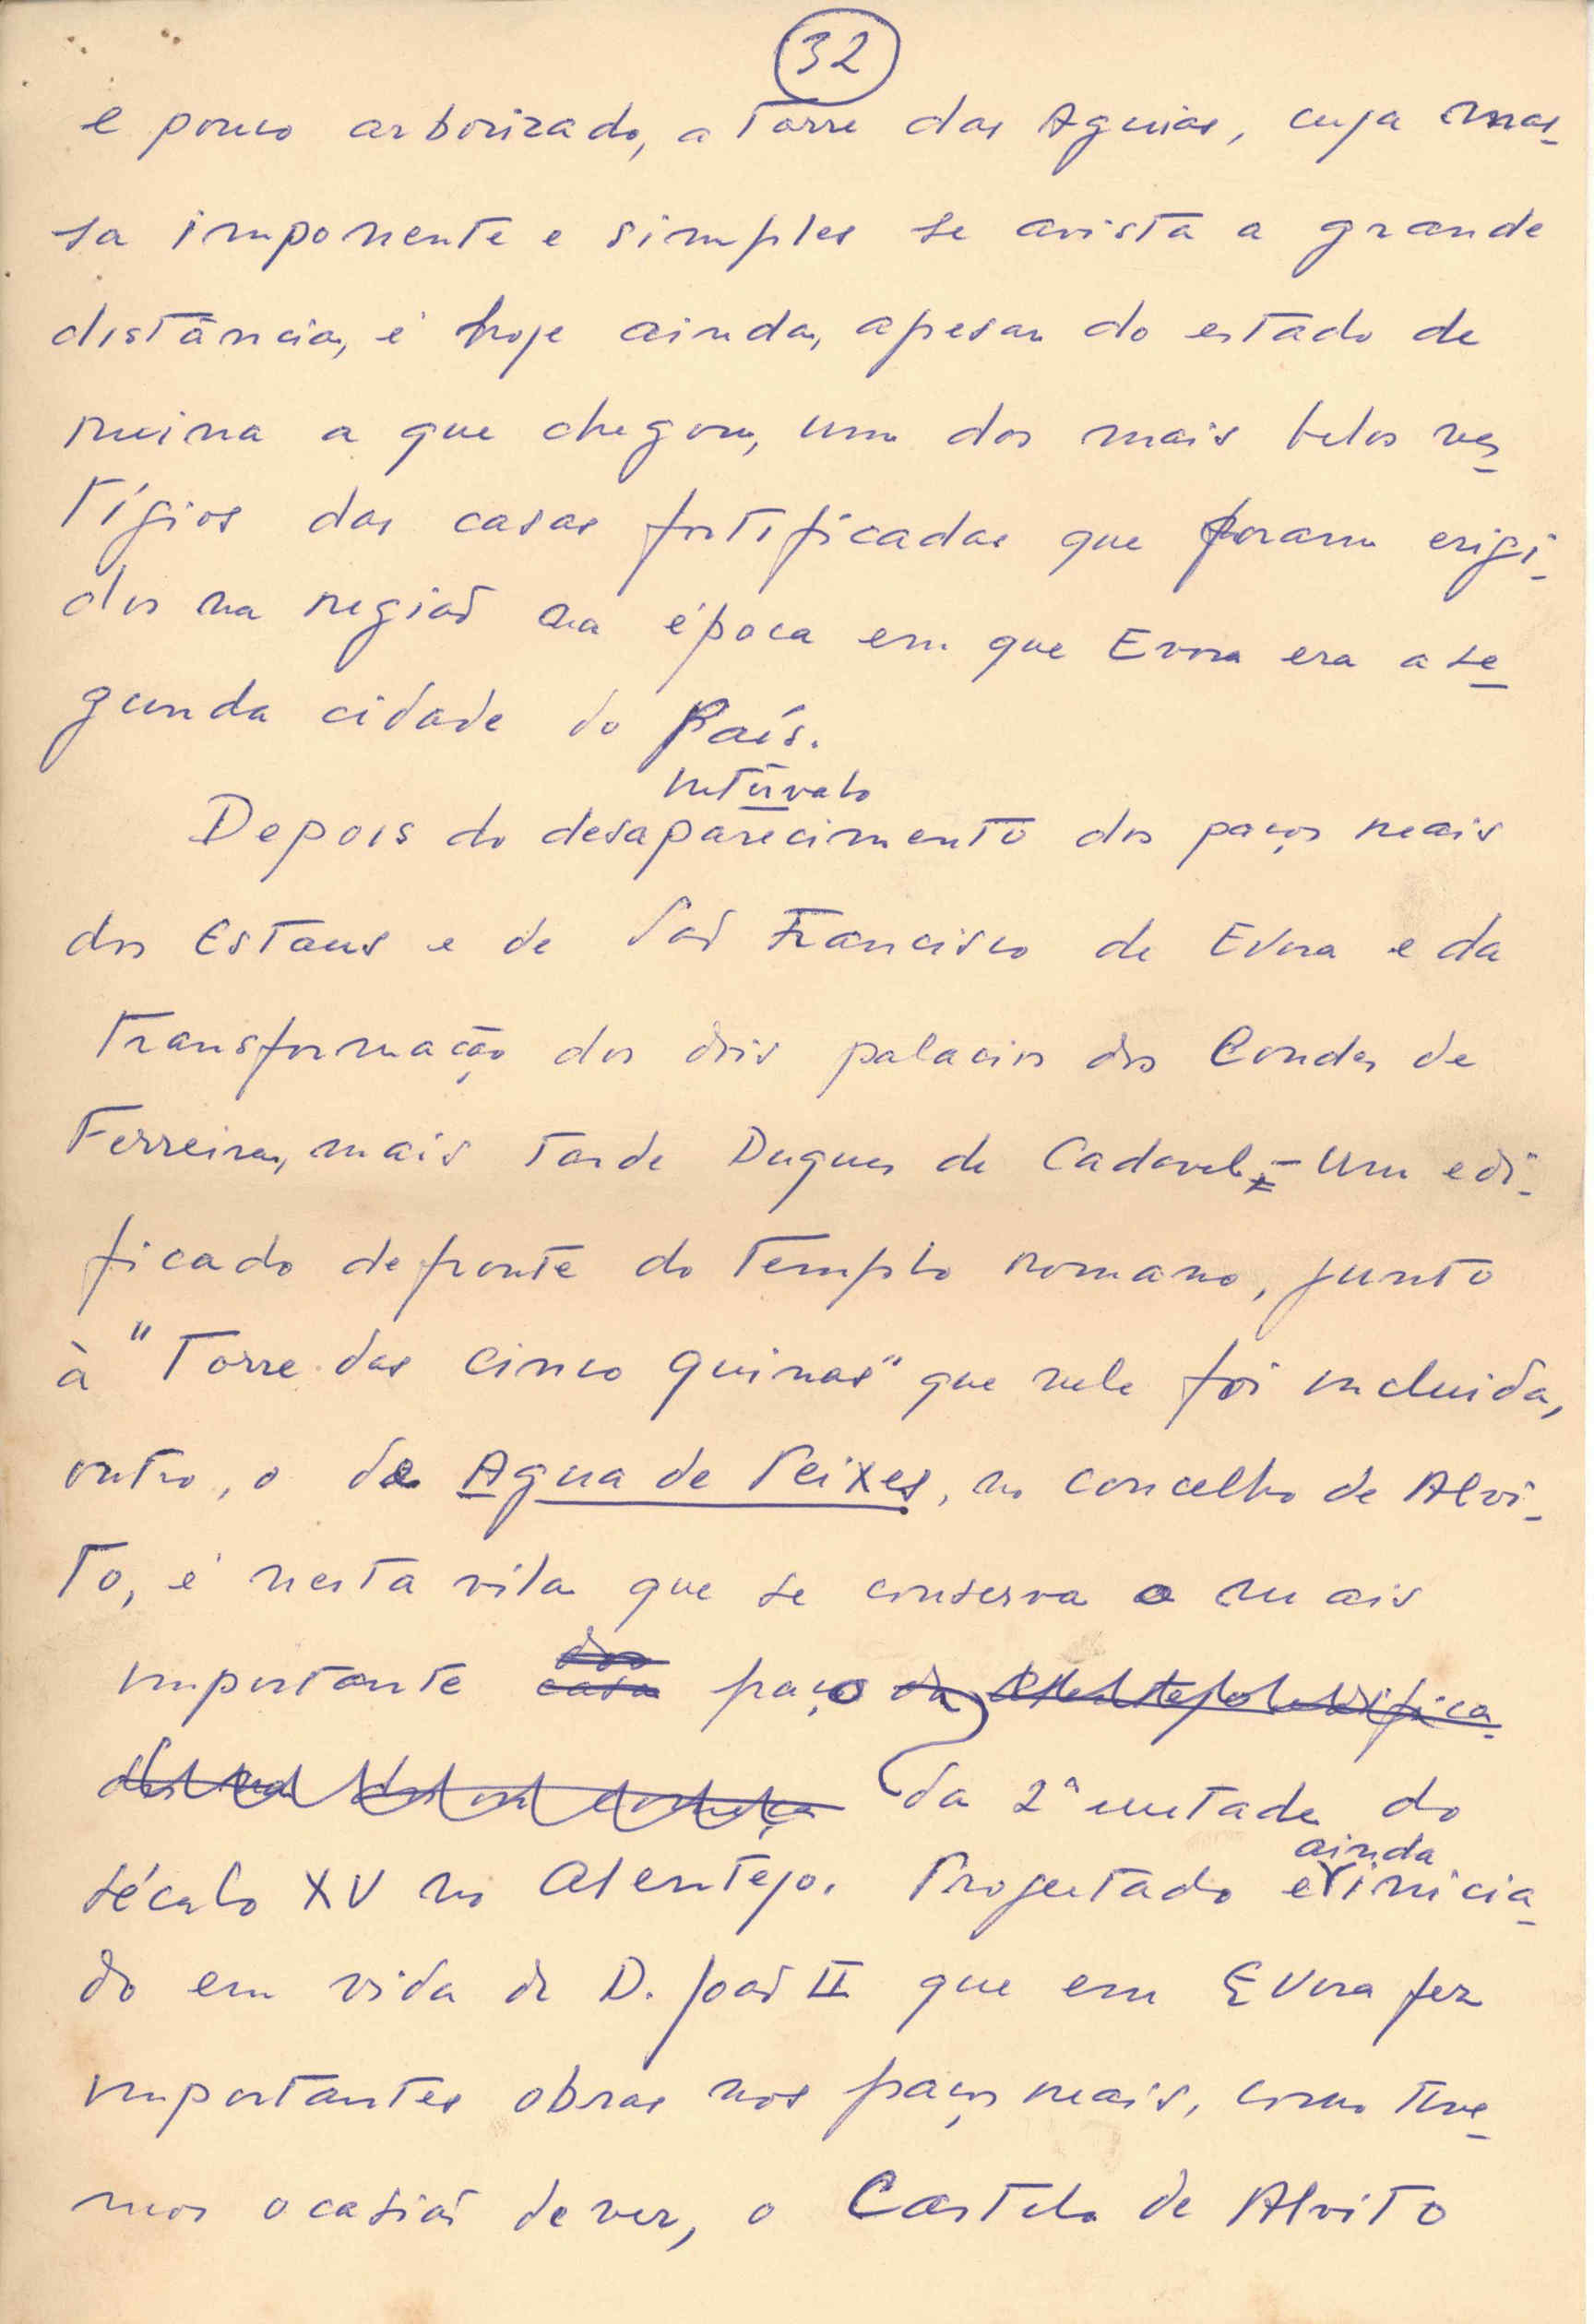 32
e pouco arborizado, a Torre das Aguias, cuja mas-
sa imponente e simples se avista a grande
distância, é hoje ainda, apesar do estado de
ruina a que chegou, um dos mais belos ves-
tígios das casas fortificadas que foram erigi-
dos na região na época em que Evora era a se-
gunda cidade do País.
Depois do desaparecimento dos paços reais
dos Estaus e de São Francisco de Evora e da
transformação dos dois palacios dos Condes de
Ferreira, mais tarde Duques de Cadaval - um edi-
ficado defronte do templo romano, junto
à "Torre das cinco quinas" que nele foi incluida,
outro, o de Agua de Peixes, no concelho de Alvi-
to, é nesta vila que se conserva o mais
importante dos casa paço da
da 2ª metade do
século XV no Alentejo. Projectado e ainda inicia-
do em vida de D. João II que em Evora fez
importantes obras nos paços reais, como tive-
mos ocasião de ver, o Castelo de Alvito